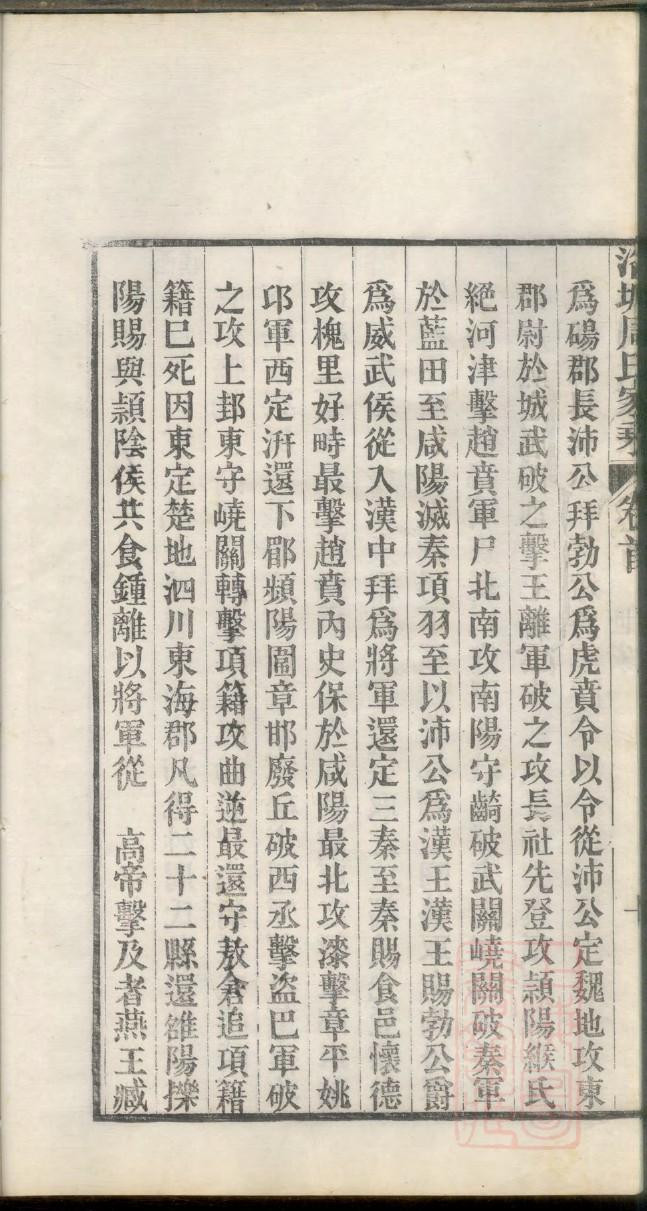 周氏家乘 卷首
為碭郡長沛公拜勃公為虎賁令以令從沛公定魏地攻東
郡尉於城武破之擊王離軍破之攻長社先登攻潁陽緱氏
絕河津擊趙賁軍尸北南攻南陽守齮破武關嶢關破秦軍
於藍田至咸陽滅秦項羽至以沛公為漢王漢王賜勃公爵
為威武侯從入漢中拜為將軍還定三秦至秦賜食邑懷德
攻槐里好畤最擊趙賁內史保於咸陽最北攻漆擊章平姚
卭軍西定汧還下郿頻陽圍章邯廢丘破西丞擊盜巴軍破
之攻上邽東守嶢關轉擊項籍攻曲逆最還守敖倉追項籍
籍巳死因東定楚地泗川東海郡凡得二十二縣還雒陽擽
陽賜與潁陰侯共食鍾離以將軍從 高帝擊反者燕王臧